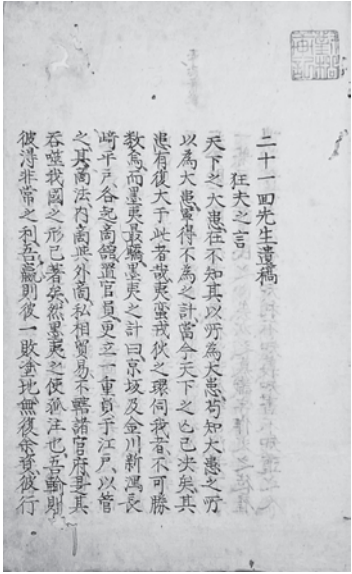 二十一回先生遺稿
狂夫之言
天下之大患在不知其以所為大患苟知大患之所
以為大患寧得不為之計當今天下之亡已決矣其
患有復大于此者哉夷蛮戎狄之環伺我者不可勝
数焉而墨夷最驕墨夷之計曰京坂及金川新潟長
崎平戸各起商館置官員更立一重員于江戸以管
之其商法内商与外商私相貿易不轄諸官府是其
吞噬我國之形已著矣然墨夷之使孤注也吾輸則
彼得非常之利吾贏則彼一敗塗地無復余資彼行